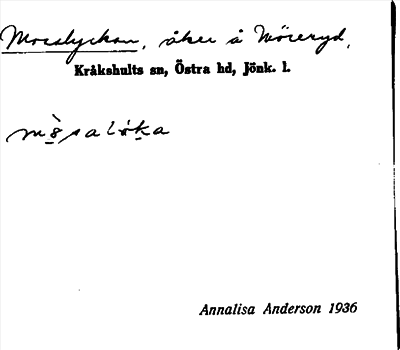 Mosslyckan, åker å Möreryd,
Kråkshults sn, Östra hd, Jönk. l.
Annalisa Anderson 1936